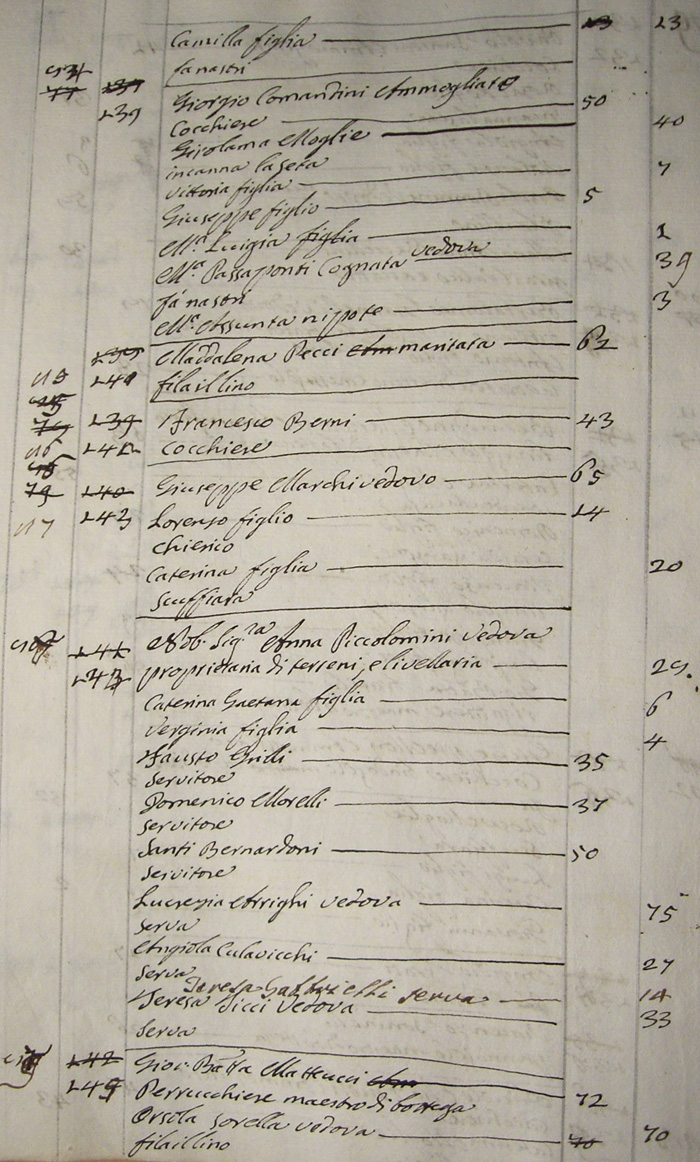 Camilla figlia 23 23
fa nastri
Giorgio Comandini Ammogliato
239
Cocchiere 50
Girolama Moglie 40
incanna la seta
Vittoria figlia 7
Giuseppe figlio 5
M.ª Luigia figlia 1
M.ª Passaponti Cognata vedova 39
fa nastri
M.ª Assunta nipote 3
239 Maddalena Pecci Am maritata 62
240 filaillino
239 Francesco Berni 43
Cocchiere
240 Giuseppe Marchi vedovo 65
243 Lorenzo figlio 14
Chierico
Caterina figlia 20
Scuffiara
Nob. Sig.ra Anna Piccolomini Vedova
proprietaria di terreni, e livellaria 29.
Caterina Gaetana figlia 6
Verginia figlia 4
Fausto Grilli 35
Servitore
Domenico Morelli 37
Servitore
Santi Bernardoni 50
Servitore
Lucrezia Arrighi Vedova 75
Serva
Angiola Culavicchi 27
Serva
Teresa Gabbrielli serva 14
Teresa Vedova 33
Serva
242 Gio: Batta Matteucci Am
Perrucchiere maestro di bottega 72
Orsola sorella vedova 70 70
filaillino